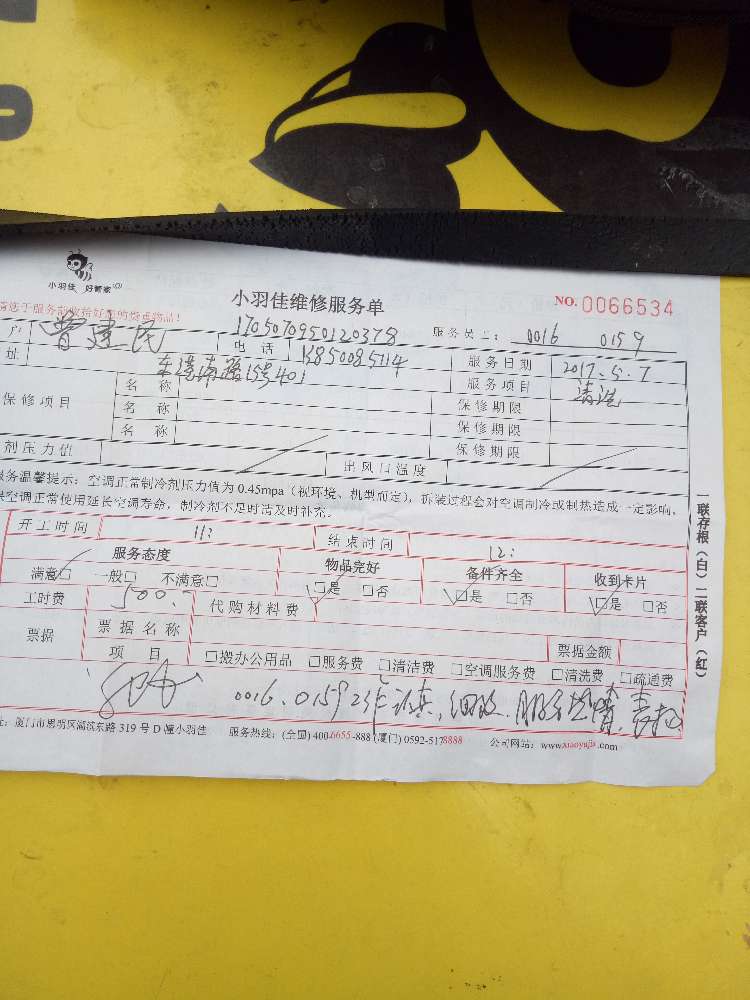 小羽佳 好管家
小羽佳维修服务单
NO.0066534
1705070950120378
服务员工: 0016 0159
户 曾建民 电话 13850085114 服务日期 2017.5.7
址 东渡南路15号401 服务项目 清洗
保修项目 名称 保修期限
名称 保修期限
名称 保修期限
剂压力值 出风口温度
服务温馨提示:空调正常制冷剂压力值为0.45mpa(视环境、机型而定),拆装过程会对空调制冷或制热造成一定影响,
保空调正常使用延长空调寿命,制冷剂不足时请及时补充。
开工时间 11: 结束时间 12:
服务态度 物品完好 备件齐全 收到卡片
满意□ 一般□ 不满意□ □是 □否 □是 □否 □是 □否
工时费 500. 代购材料费
票据 票据名称 票据金额
项目 □搬办公用品 □服务费 □清洁费 □空调服务费 □清洗费 □疏通费
0016.0159工作认真,细致,服务热情
址:厦门市思明区湖滨东路319号D幢小羽佳 服务热线:(全国)400-6655-888 (厦门)0592-5178888 公司网站:www.xiaoyujia.com
一联存根(白)二联客户(红)